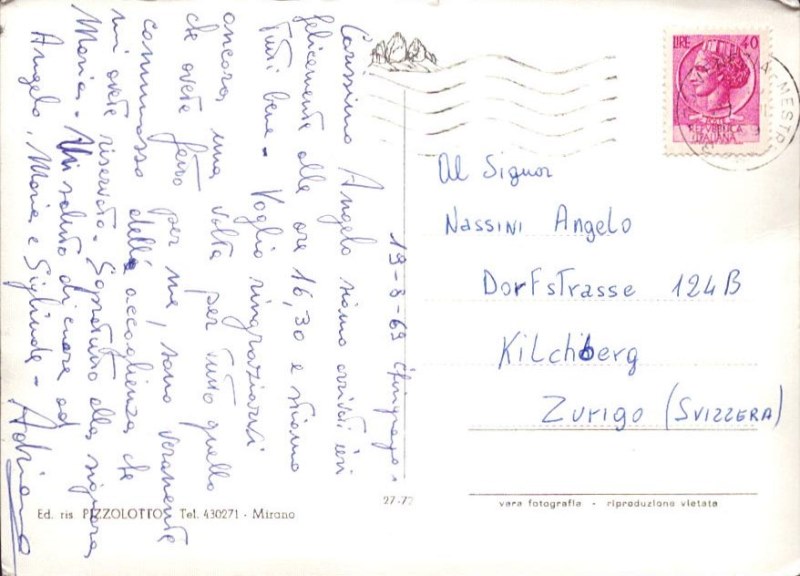 19-8-69
Carissimo Angelo siamo arrivati ieri
felicemente alle ore 16,30 e stiamo
tutti bene - Voglio ringraziarvi
ancora una volta per tutto quello
che avete fatto per me, sono veramente
commosso dell' accoglienza che
mi avete riservato. Sopratutto alla signora
Maria - Un saluto di cuore ad
Angelo, Maria e Siglinda -
Adriano
LIRE 40
REPVBBLICA
ITALIANA
MESTR
Al Signor
Nassini Angelo
Dorfstrasse 124B
Kilchberg
Zurigo (Svizzera)
Ed. ris. PIZZOLOTTO Tel. 430271 - Mirano
27-72
vera fotografia - riproduzione vietata